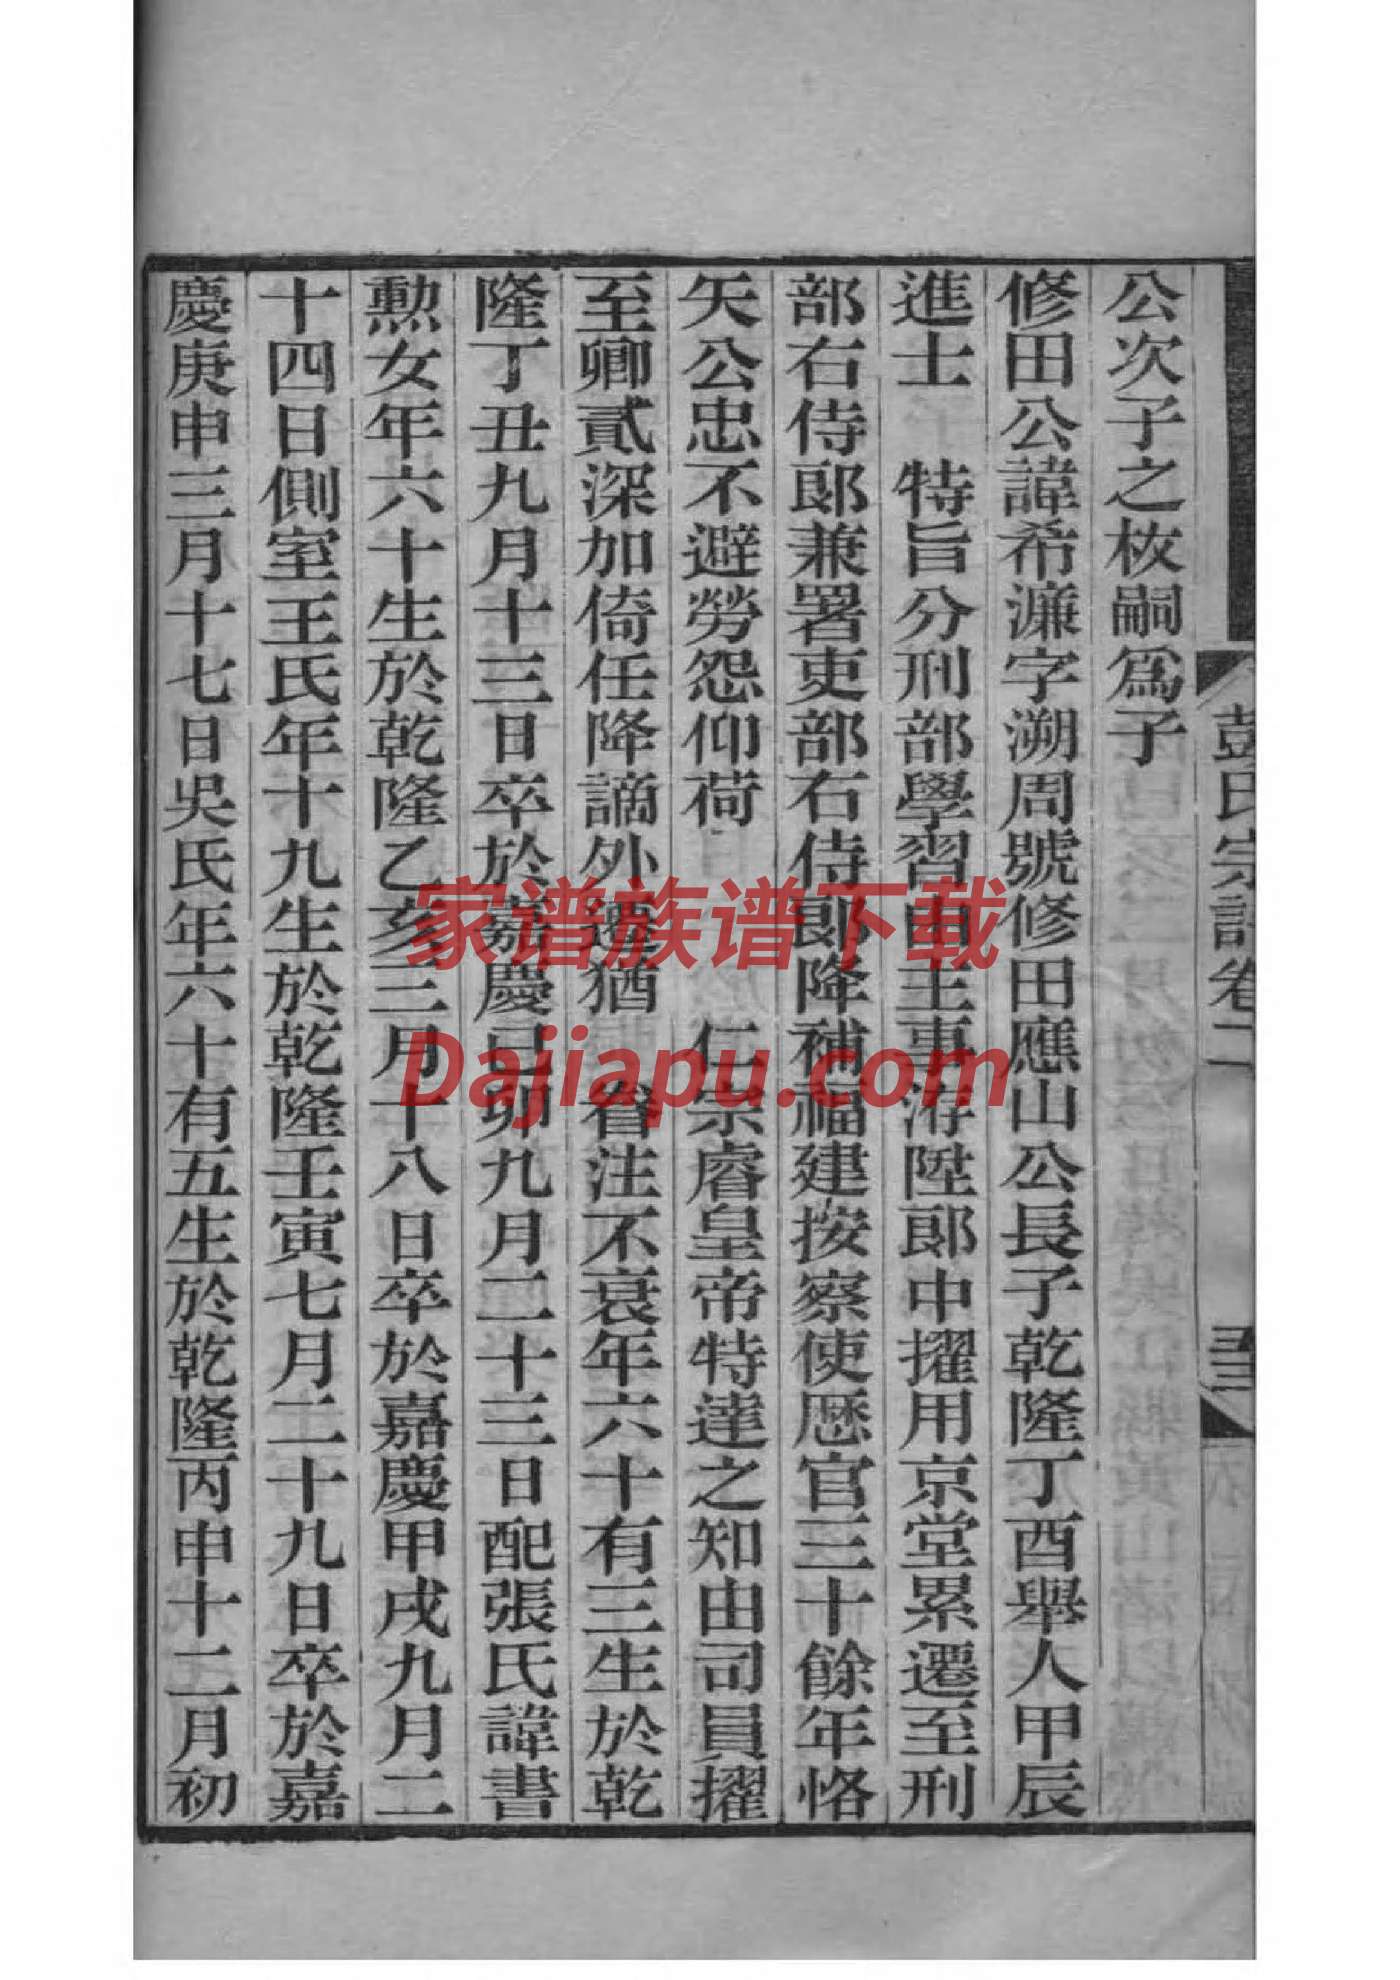 彭氏宗譜卷二
公次子之枚嗣爲子
修田公諱希濂字溯周號修田應山公長子乾隆丁酉舉人甲辰
進士　特旨分刑部學習由主事洊陞郎中擢用京堂累遷至刑
部右侍郎兼署吏部右侍郎降補福建按察使歷官三十餘年恪
矢公忠不避勞怨仰荷　仁宗睿皇帝特達之知由司員擢
至卿貳深加倚任降謫外遷猶　眷注不衰年六十有三生於乾
隆丁丑九月十三日卒於嘉慶己卯九月二十三日配張氏諱書
勲女年六十生於乾隆乙亥三月十八日卒於嘉慶甲戌九月二
十四日側室王氏年十九生於乾隆壬寅七月二十九日卒於嘉
慶庚申三月十七日吳氏年六十有五生於乾隆丙申十二月初
家谱族谱下载
Dajiapu.com